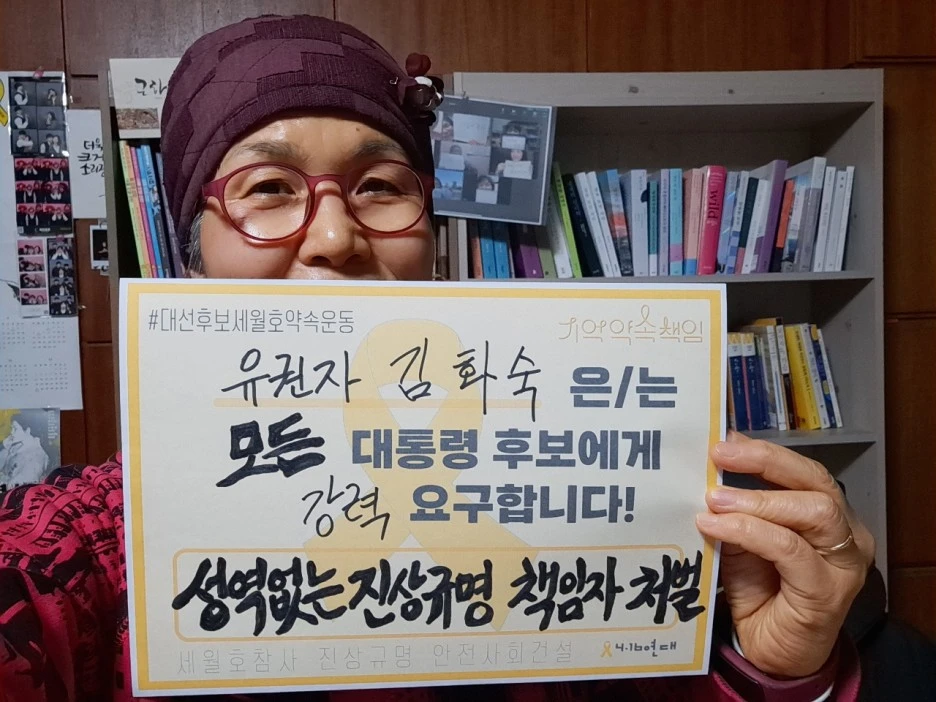 #대선후보세월호약속운동
기억약속책임
유권자 김화숙 은/는
모든 대통령 후보에게
강력 요구합니다!
성역없는 진상규명 책임자 처벌
세월호참사 진상규명 안전사회건설
4.16연대
wild